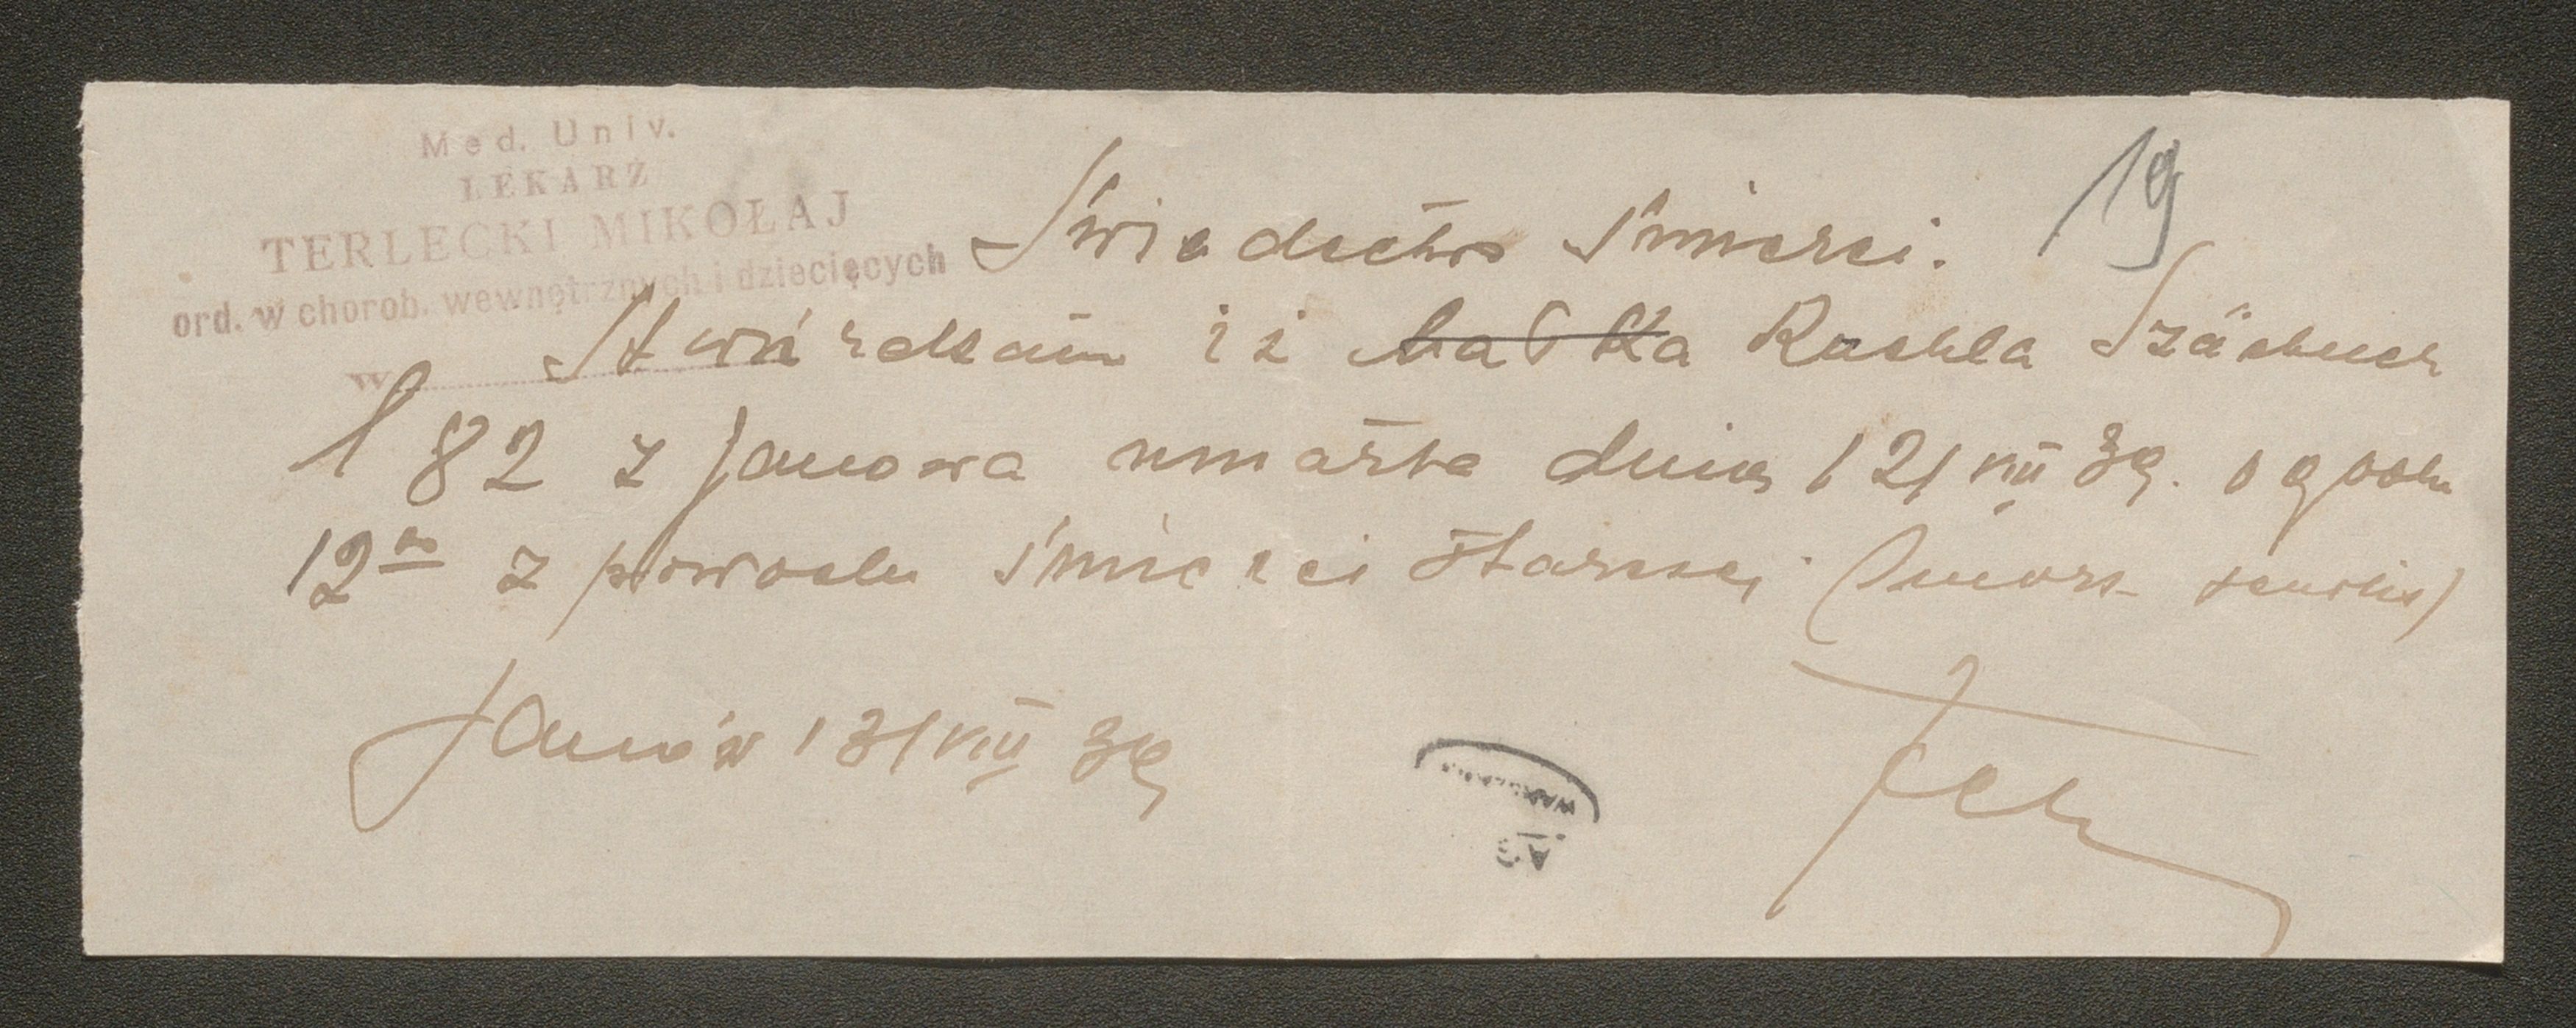 Med. Univ.
LEKARZ
TERLECKI MIKOŁAJ
ord. w chorob. wewnętrznych i dziecięcych
w
19
Świadectwo śmierci.
Stwierdzam iż Rachla
l 82 z Janowa umarła dnia 12/VIII 39. o godz
12 z powodu śmierci starczej (mors senilis)
Janów 13/VIII 39
AG